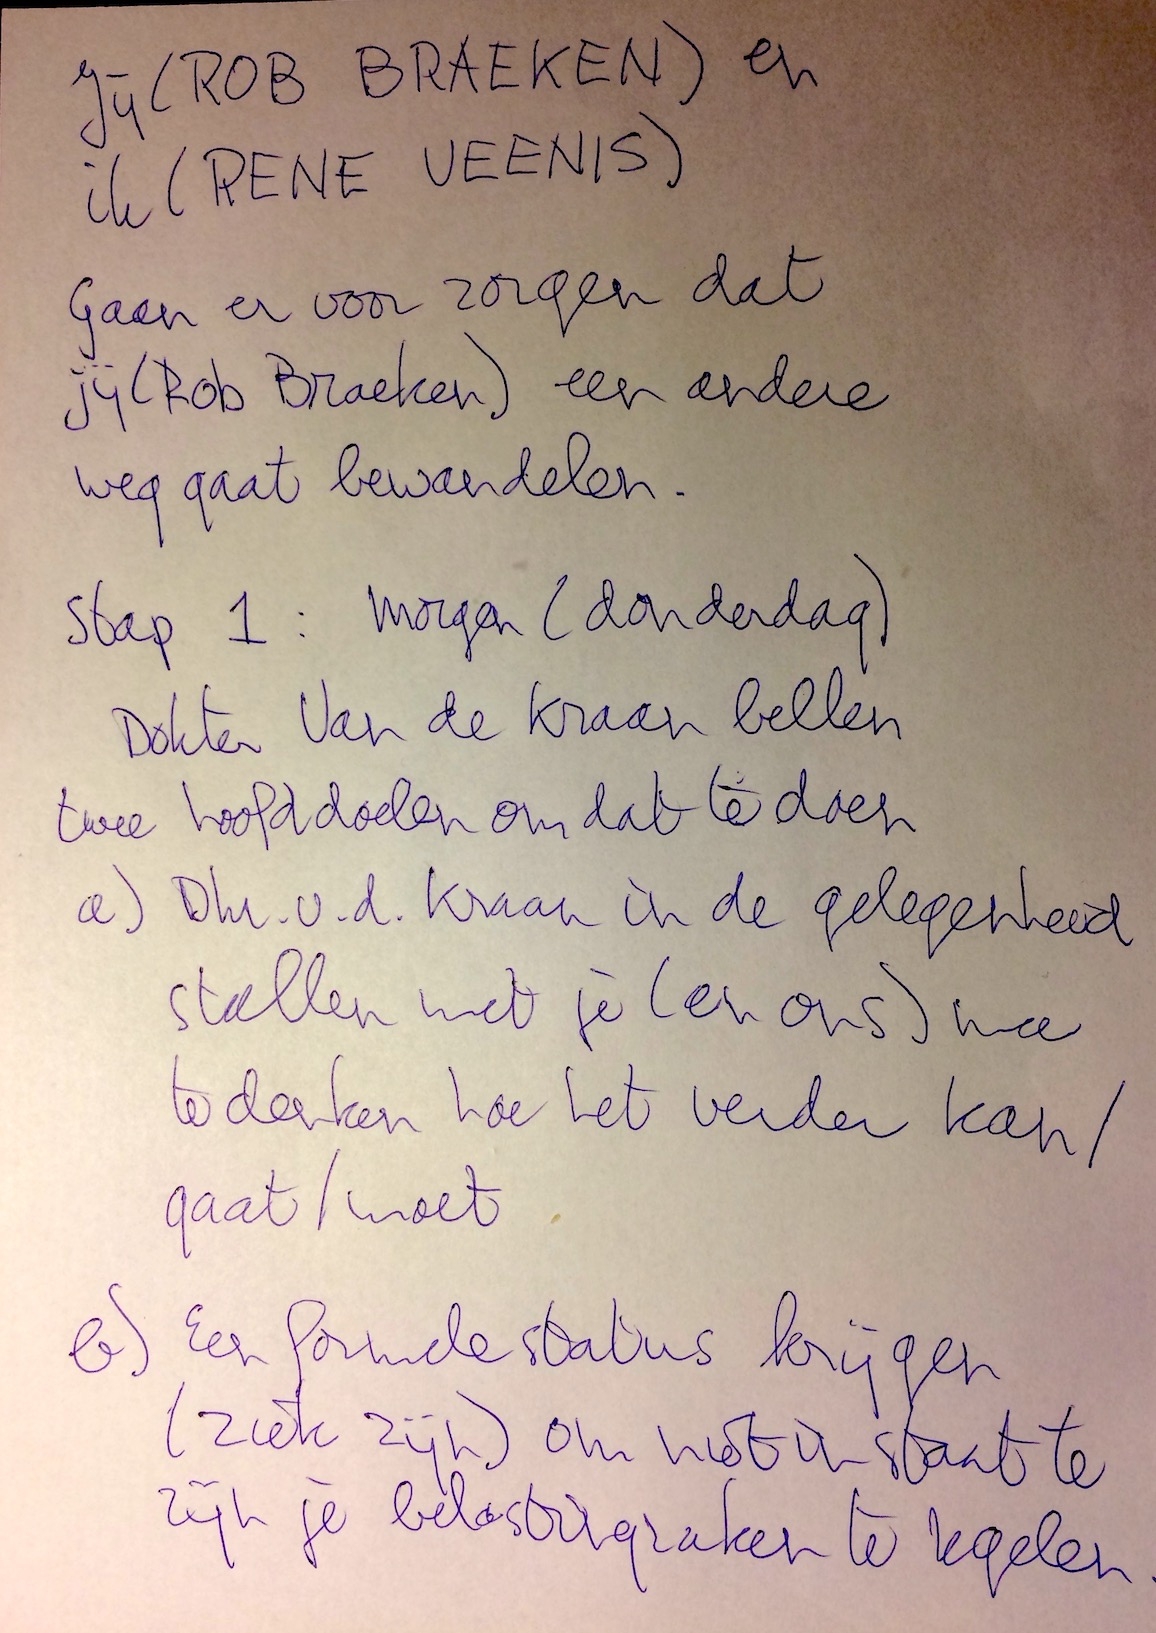 Jij (ROB BRAEKEN) en
ik (RENE VEENIS)
Gaan er voor zorgen dat
jij (Rob Braeken) een andere
weg gaat bewandelen.
Stap 1 : Morgen (donderdag)
Dokter Van de Kraan bellen
twee hoofddoelen om dat te doen
a) Dhr. v.d. Kraan in de gelegenheid
stellen met je (en ons) mee
te denken hoe het verder kan/
gaat/moet
b) Een formele status krijgen
(ziek zijn) om niet in staat te
zijn je belastingzaken te regelen.